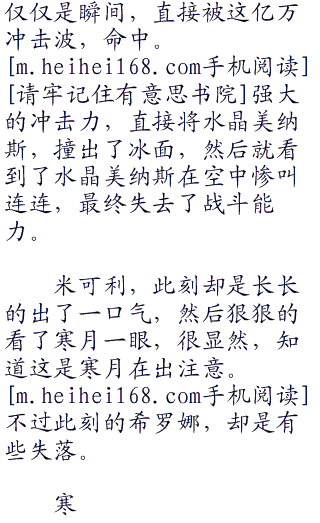 仅仅是瞬间，直接被这亿万
冲击波，命中。
[m.heihei168.com手机阅读]
[请牢记住有意思书院]强大
的冲击力，直接将水晶美纳
斯，撞出了冰面，然后就看
到了水晶美纳斯在空中惨叫
连连，最终失去了战斗能
力。
米可利，此刻却是长长
的出了一口气，然后狠狠的
看了寒月一眼，很显然，知
道这是寒月在出注意。
[m.heihei168.com手机阅读]
不过此刻的希罗娜，却是有
些失落。
寒